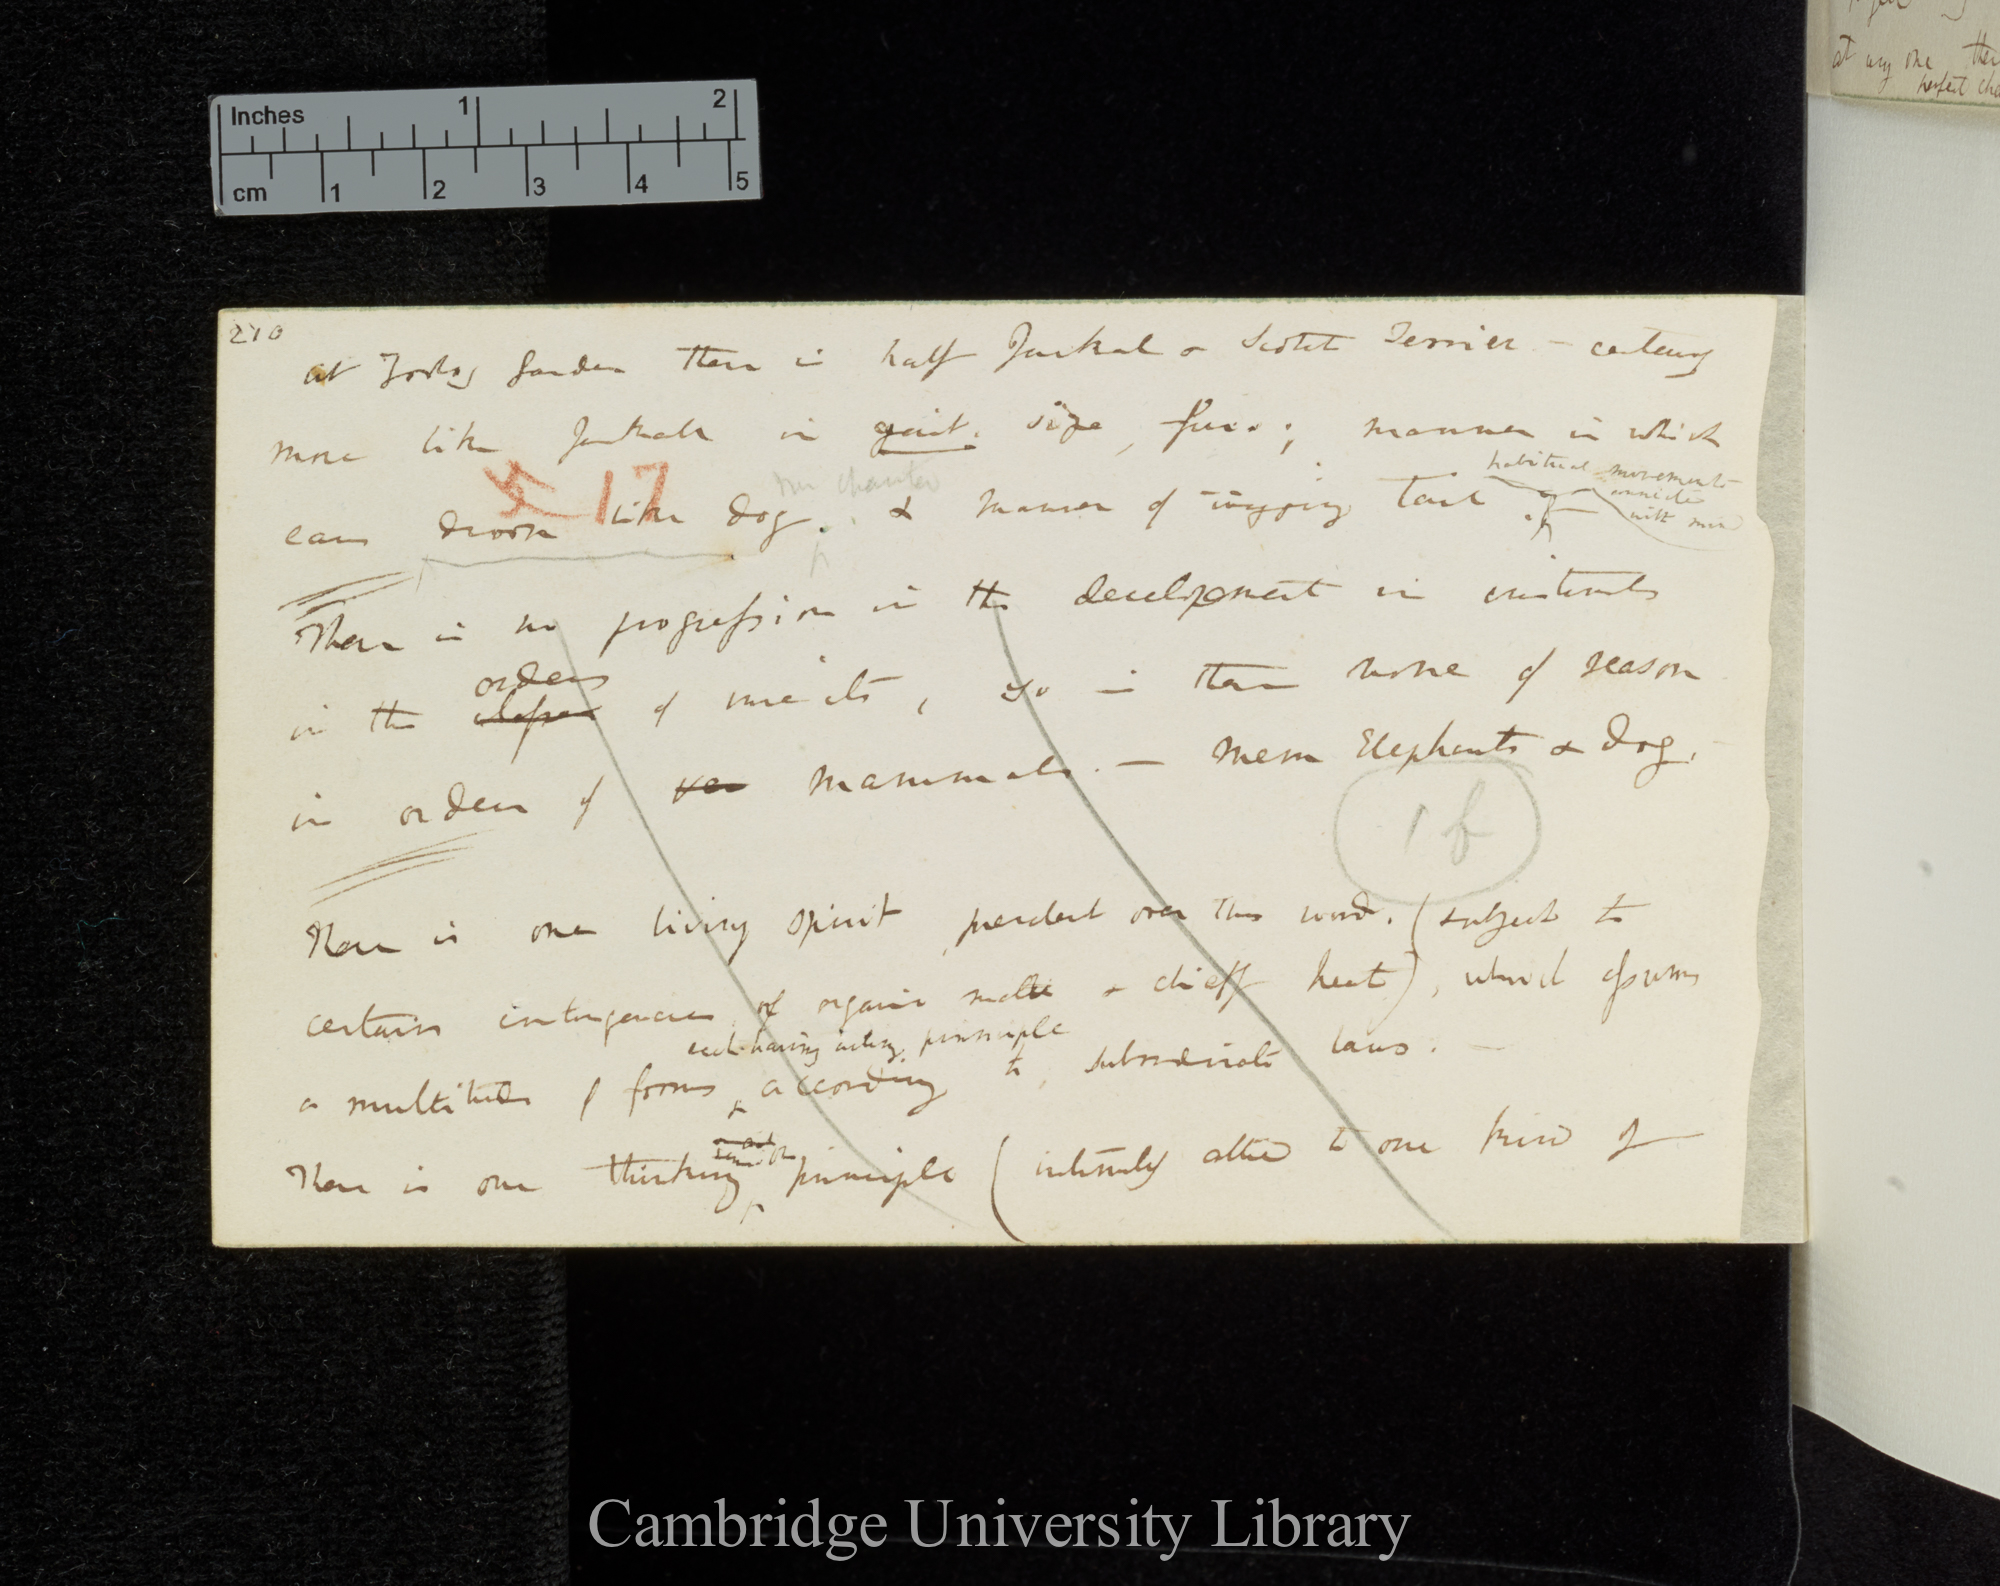 Inches 1 2
cm 1 2 3 4 5
at any one then
perfect
210
at Zoolog Garden there is half Jackal & Scotch Terrier – certainly
more like Jackall in gait, size, fur; manner in which
habitual movements
connected
with mind
17
our character
ears droop like dog, & manner of wagging tail
There is no progression in the development in instincts
orders
in the classes of insects, so is there none of reason
in orders of ver mammals. — Mem Elephants & Dog.
1 f
There is one living spirit, prevalent over this word, (subject to
certain contingencies of organic matter & chiefly heat), which assumes
each having acting principle
a multitude of forms according to subordinate laws. —
There is one thinking principle (intimately allied to one kind of
Cambridge University Library